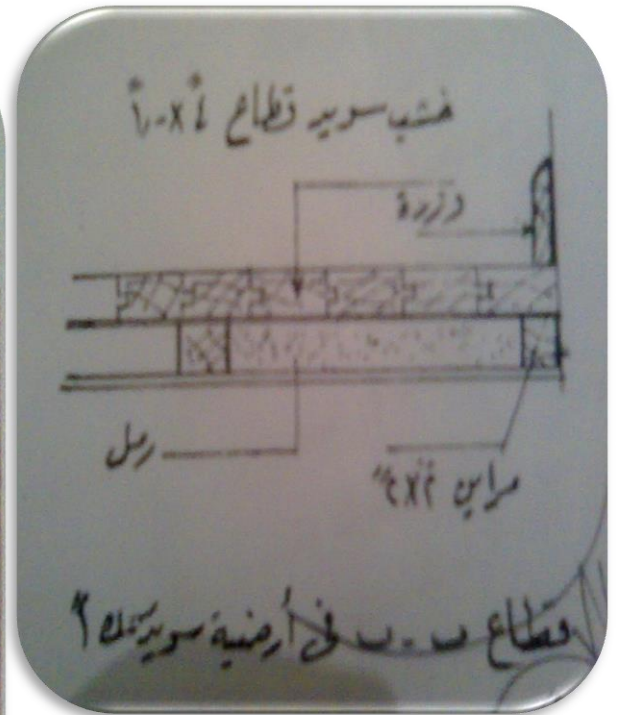 خشب سويد قطاع ٤"×١"
وزرة
رمل
مراين ٢"×٢"
قطاع ب - ب فى أرضية سويد سمك ١"